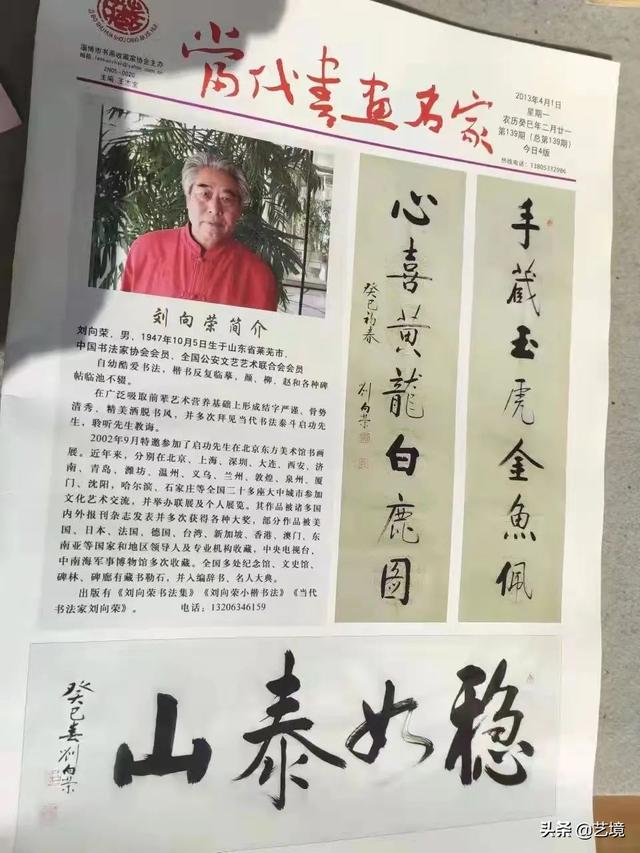 淄博市书画收藏家协会主办
ZN05-0020
主编 王杰宝
當代書畫名家
2013年4月1日
星期一
农历癸巳年二月廿一
第139期(总第139期)
今日4版
热线电话:13805332986
刘向荣简介
刘向荣，男，1947年10月5日生于山东省莱芜市，
中国书法家协会会员、全国公安文艺艺术联合会会员
自幼酷爱书法，楷书反复临摹，颜、柳、赵和各种碑
帖临池不辍。
在广泛吸取前辈艺术营养基础上形成结字严谨、骨势
清秀，精美洒脱书风，并多次拜见当代书法泰斗启功先
生，聆听先生教诲。
2002年9月特邀参加了启功先生在北京东方美术馆书画
展。近年来，分别在北京、上海、深圳、大连、西安、济
南、青岛，潍坊、温州、义乌、兰州、敦煌、泉州、厦
门、沈阳，哈尔滨、石家庄等全国二十多座大中城市参加
文化艺术交流，并举办联展及个人展览。其作品被诸多国
内外报刊杂志发表并多次获得各种大奖，部分作品被美
国、日本、法国，德国、台湾、新加坡、香港、澳门、东
南亚等国家和地区领导人及专业机构收藏，中央电视台，
中南海军事博物馆多次收藏。全国多处纪念馆、文史馆、
碑林、碑廊有藏书勒石，并入编辞书、名人大典。
出版有《刘向荣书法集》《刘向荣小楷书法》《当代
书法家刘向荣》。 电话：13206346159
手藏玉虎金魚佩
心喜黄龍白鹿图
癸巳初春 刘向荣
稳如泰山
癸巳春刘向荣
头条 @艺境